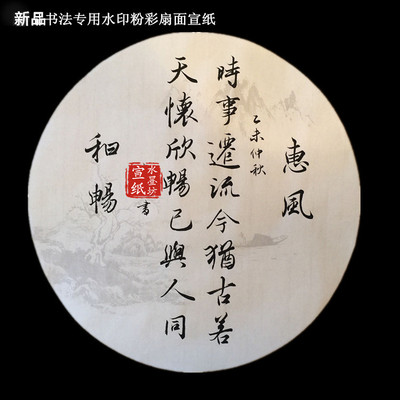 新品书法专用水印粉彩扇面宣纸
惠風
時事遷流今猶古若
乙未仲秋
天懷欣暢己與人同
和暢
宣纸
書